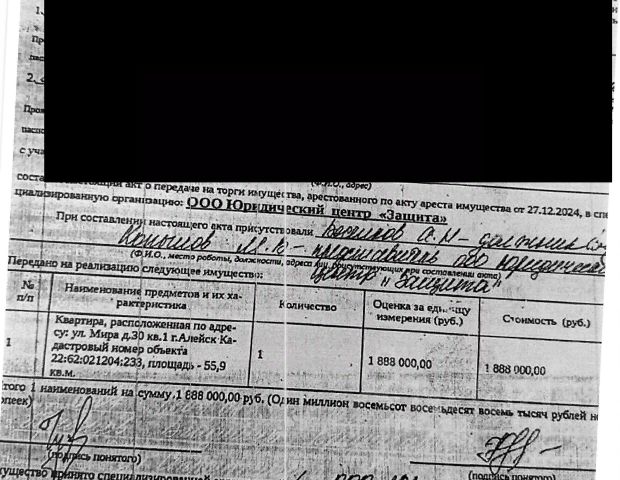 1.
Пр
пас
2.
Пров
паспо
с уча
(Ф.И.О., адрес)
соста настоящий акт о передаче на торги имущества, арестованного по акту ареста имущества от 27.12.2024, в спе
циализированную организацию: ООО Юридический центр «Защита»
При составлении настоящего акта присутствовали А.Н – должник
М.Ю – представитель ООО юридический
(Ф.И.О., место работы, должности, адреса лиц, присутствующих при составлении акта)
центр "Защита"
Передано на реализацию следующее имущество:
№ п/п Наименование предметов и их ха- Количество Оценка за единицу Стоимость (руб.)
рактеристика измерения (руб.)
1 Квартира, расположенная по адре- 1 1 888 000,00 1 888 000,00
су: ул. Мира д.30 кв.1 г.Алейск Ка-
дастровый номер объекта
22:62:021204:233, площадь - 55,9
кв.м.
того 1 наименований на сумму 1 888 000,00 руб. (Один миллион восемьсот восемьдесят восемь тысяч рублей
опеек)
(подпись понятого)
(подпись понятого)
ущество принято специализированной